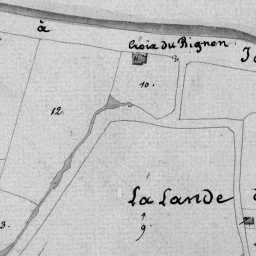 à
Croix du Rignon
10.
12.
La Lande
9
3.